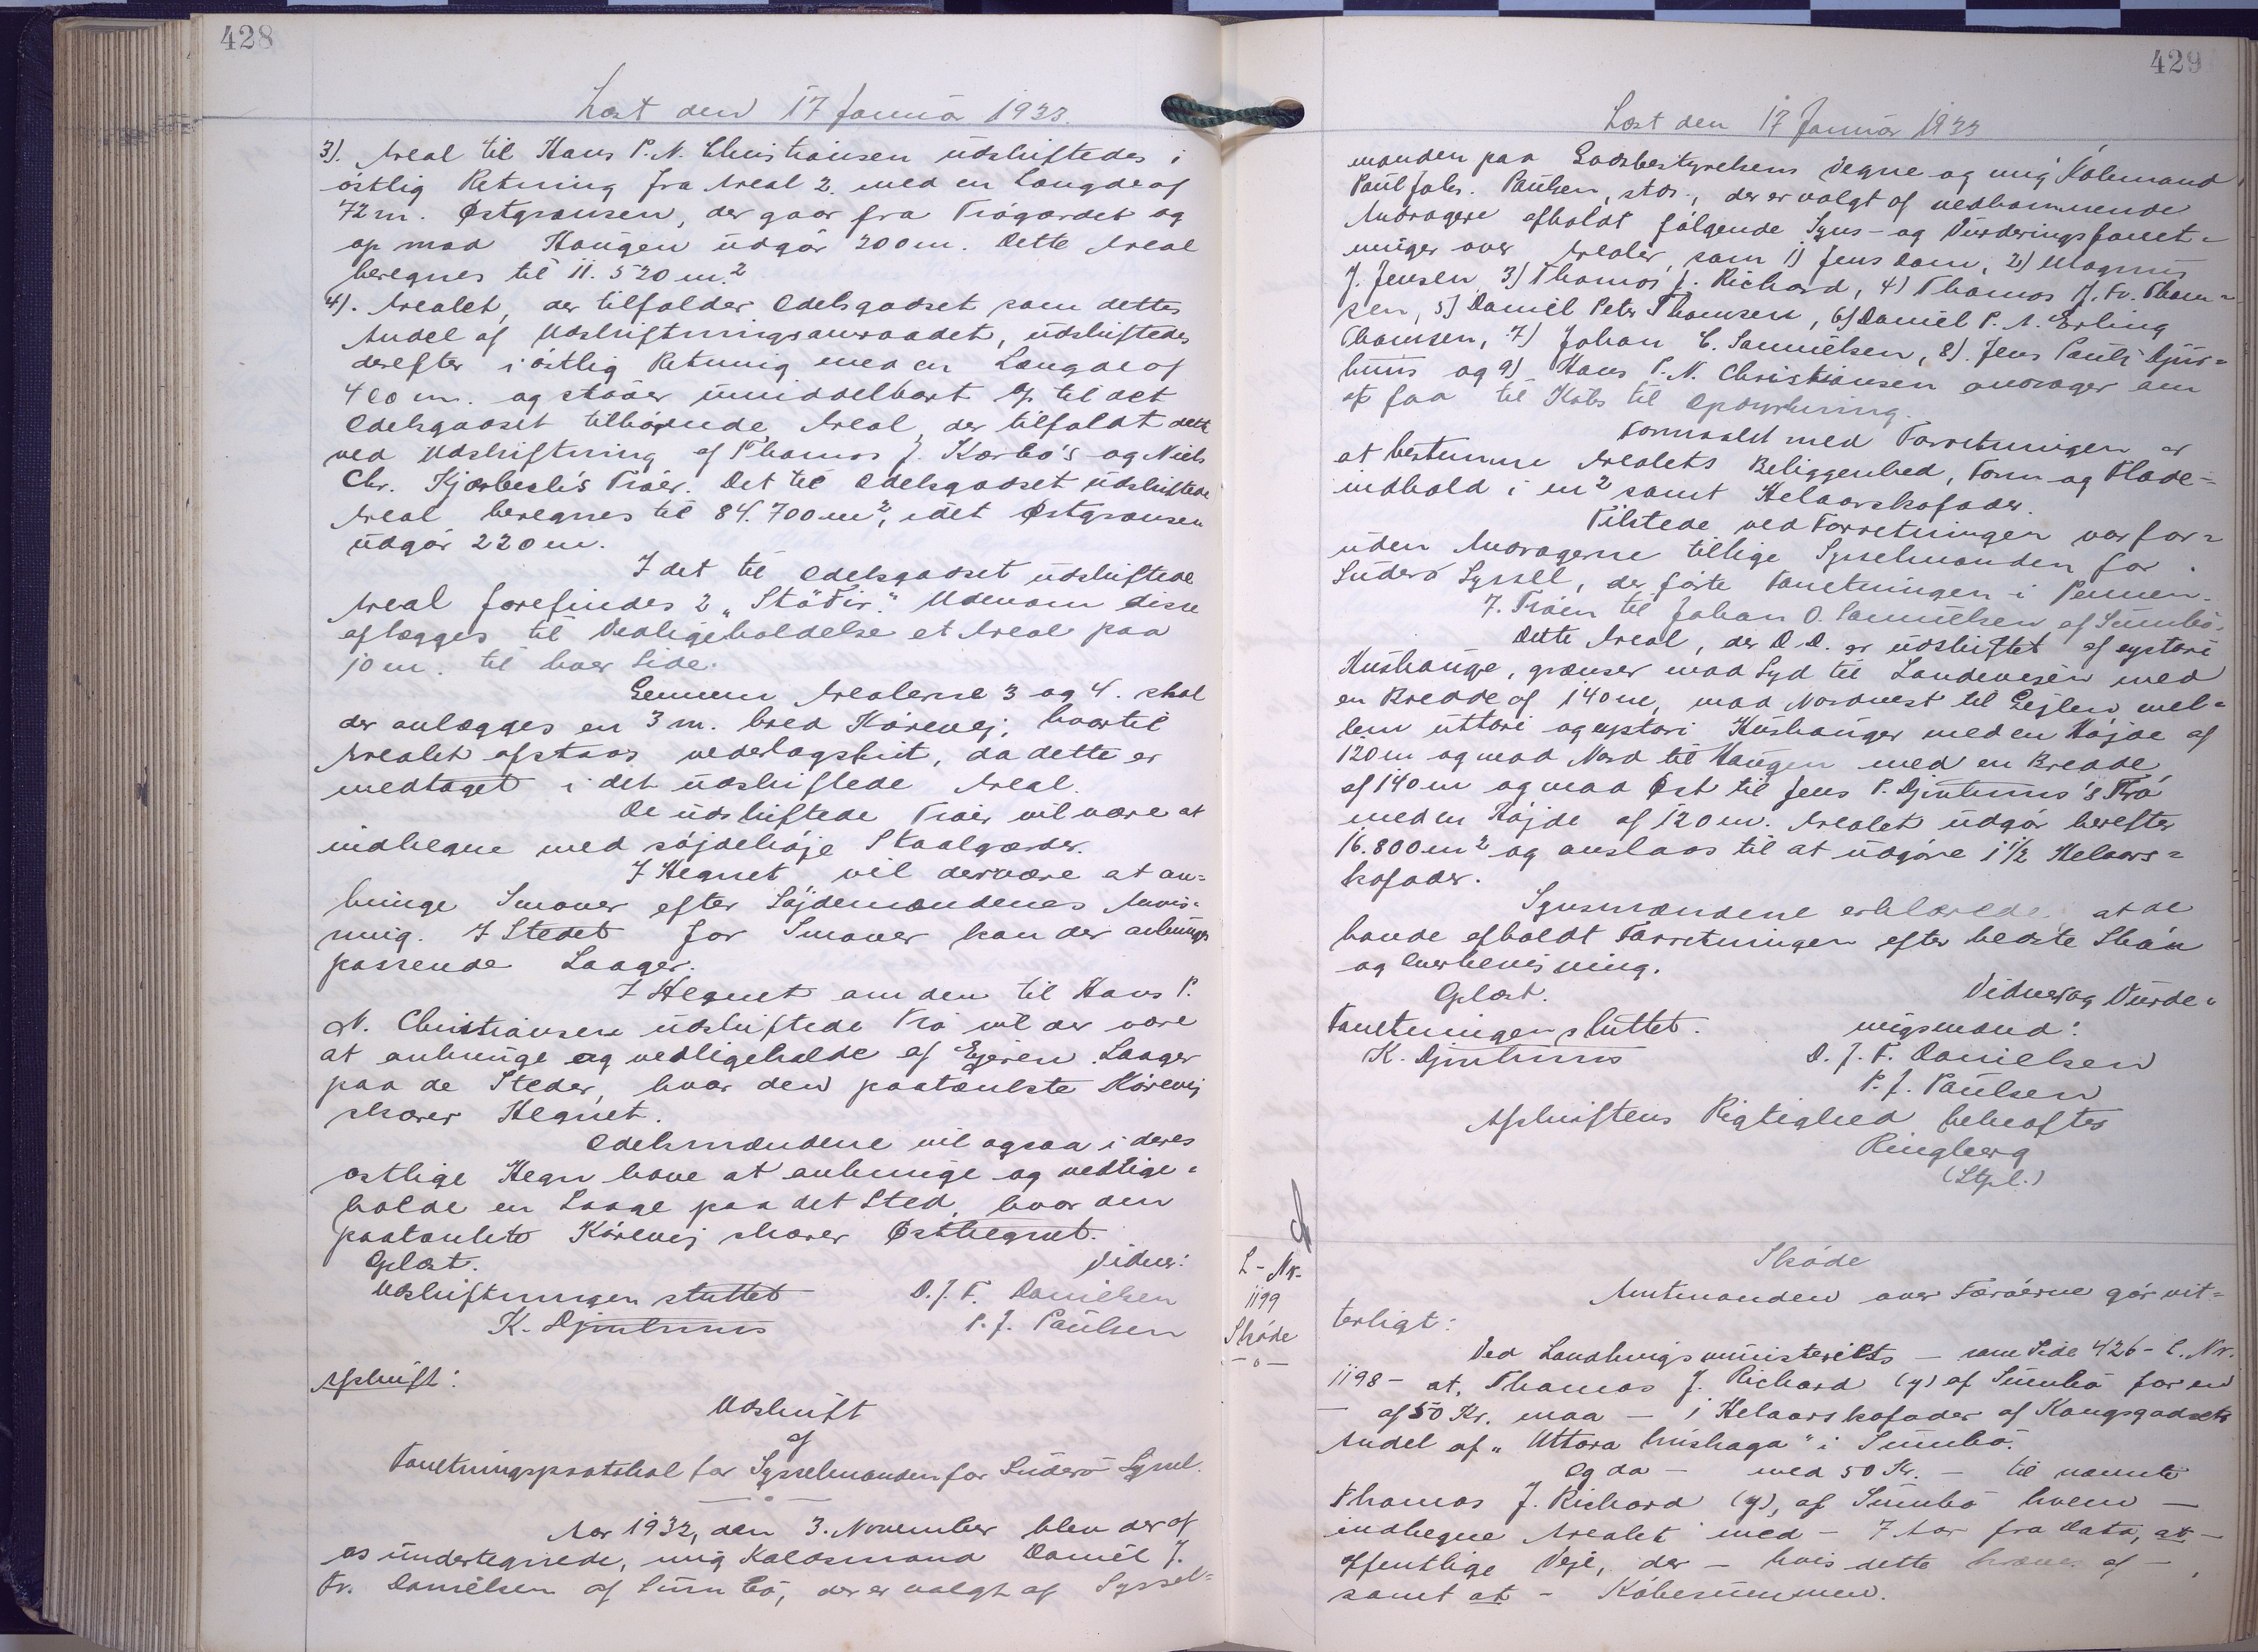 428
Læst den 17 Januar 1933.
3). Areal til Hans P. N. Christiansen udskiftedes i
östlig Retning fra Areal 2. med en Længde af
72 m. Østgrænsen, der gaar fra Trøgærdet og
op mod Haugen udgör 200 m. Dette Areal
beregnes til 11.520 m.²
4). Arealet, der tilfalder Odelsgodset som dettes
Andel af Udskiftningsomraadet, udskiftedes
derefter i östlig Retning med en Længde af
400 m. og støder umiddelbart op til det
Odelsgodset tilhörende Areal, der tilfaldt dette
ved Udskiftning af Thomas J. Kærbö's og Niels
Chr. Kjærbech's Tröer. Det til Odelsgodset udskiftede
Areal beregnes til 84.700 m², idet Østgrænsen
udgör 220 m.
I det til Odelsgodset udskiftede
Areal forefindes 2 "Stöðir." Udenom disse
aflægges til Vedligeholdelse et Areal paa
10 m. til hver Side.
Gennem Arealerne 3 og 4. skal
der anlægges en 3 m. bred Körevej, hvortil
Arealet afstaas vederlagsfrit, da dette er
medtaget i det udskiftede Areal.
De udskiftede Tröer vil være at
indhegne med söjdehöje Staalgærder.
I Hegnet vil der være at an=
bringe Smover efter Söjdemændenes Anvis=
ning. I Stedet for Smover kan der anbringes
passende Laager.
I Hegnet om den til Hans P.
N. Christiansen udskiftede Trö vil der være
at anbringe og vedligeholde af Ejeren Laager
paa de Steder, hvor den paatænkte Körevej
skærer Hegnet.
Odelsmændene vil ogsaa i deres
østlige Hegn have at anbringe og vedlige=
holde en Laage paa det Sted, hvor den
paatænkte Körevej skærer Østhegnet.
Oplæst. Vidner:
Udskiftningen sluttet D. J. F. Danielsen
K. Djurhuus P. J. Paulsen
Afskrift:
Udskrift
af
Forretningsprotokol for Sysselmanden for Suderö Syssel.
Aar 1932, den 3. November blev der af
os undertegnede, mig Kaldsmand Daniel J.
Fr. Danielsen af Sumbö, der er valgt af Syssel=
429
Læst den 17 Januar 1933
manden paa Godsbestyrelsens Vegne og mig Kolemand
Paul Johs. Paulsen, stds., der er valgt af vedkommende
Andragere afholdt fölgende Syns- og Vurderingsforret=
ninger over Arealer, som 1) Jens Dam, 2) Magnus
J. Jensen 3) Thomas J. Richard, 4) Thomas J. Fr. Thom=
sen, 5) Daniel Peter Thomsen, 6) Daniel P. A. Erling
Thomsen, 7) Johan E. Samuelsen, 8). Jens Pauli Djur=
huus og 9) Hans P. N. Christiansen andrager om
at faa til Köbs til Opdyrkning.
Formaalet med Forretningen er
at bestemme Arealets Beliggenhed, Form og Flade=
indhold i m² samt Helaarskofoder.
Tilstede ved Forretningen var for=
uden Andragerne tillige Sysselmanden for
Suderö Syssel, der förte Forretningen i Pennen.
7. Tröen til Johan O. Samuelsen af Sumbö.
Dette Areal, der D. D. er udskiftet af eystari
Húshauge, grænser mod Syd til Landevejen med
en Bredde af 140 m, mod Nordvest til Gejlen mel=
lem uttari og eystari Húshauger med en Höjde af
120 m og mod Nord til Haugen med en Bredde
af 140 m og mod Øst til Jens P. Djurhuus's Trö
med en Höjde af 120 m. Arealet udgör herefter
16.800 m² og anslaas til at udgöre 1 1/2 Helaars=
kofoder.
Synsmændene erklærede, at de
havde afholdt Forretningen efter bedste Skön
og Overbevisning.
Oplæst. Vidner og Vurde=
Forretningen sluttet. ringsmænd:
K. Djurhuus D. J. F. Danielsen
P. J. Paulsen
Afskriftens Rigtighed bekræftes
Ringberg
(Stpl.)
L - Nr.
1199
Sköde
- o -
Sköde
Amtmanden over Færöerne gör vit=
terligt:
Ved Landbrugsministeriets — som Side 426 - L. Nr.
1198 - at, Thomas J. Richard (y) af Sumbö for en
— af 50 Kr. maa — 1 Helaarskofoder af Kongsgodsets
Andel af "Uttara húshaga" i Sumbö.
Og da — med 50 Kr. — til nævnte
Thomas J. Richard (y), af Sumbö hvem —
indhegne Arealet med — 7 Aar fra Dato, at —
offentlige Veje, der — hvis dette kræves af —,
samt at - Köbesummen.